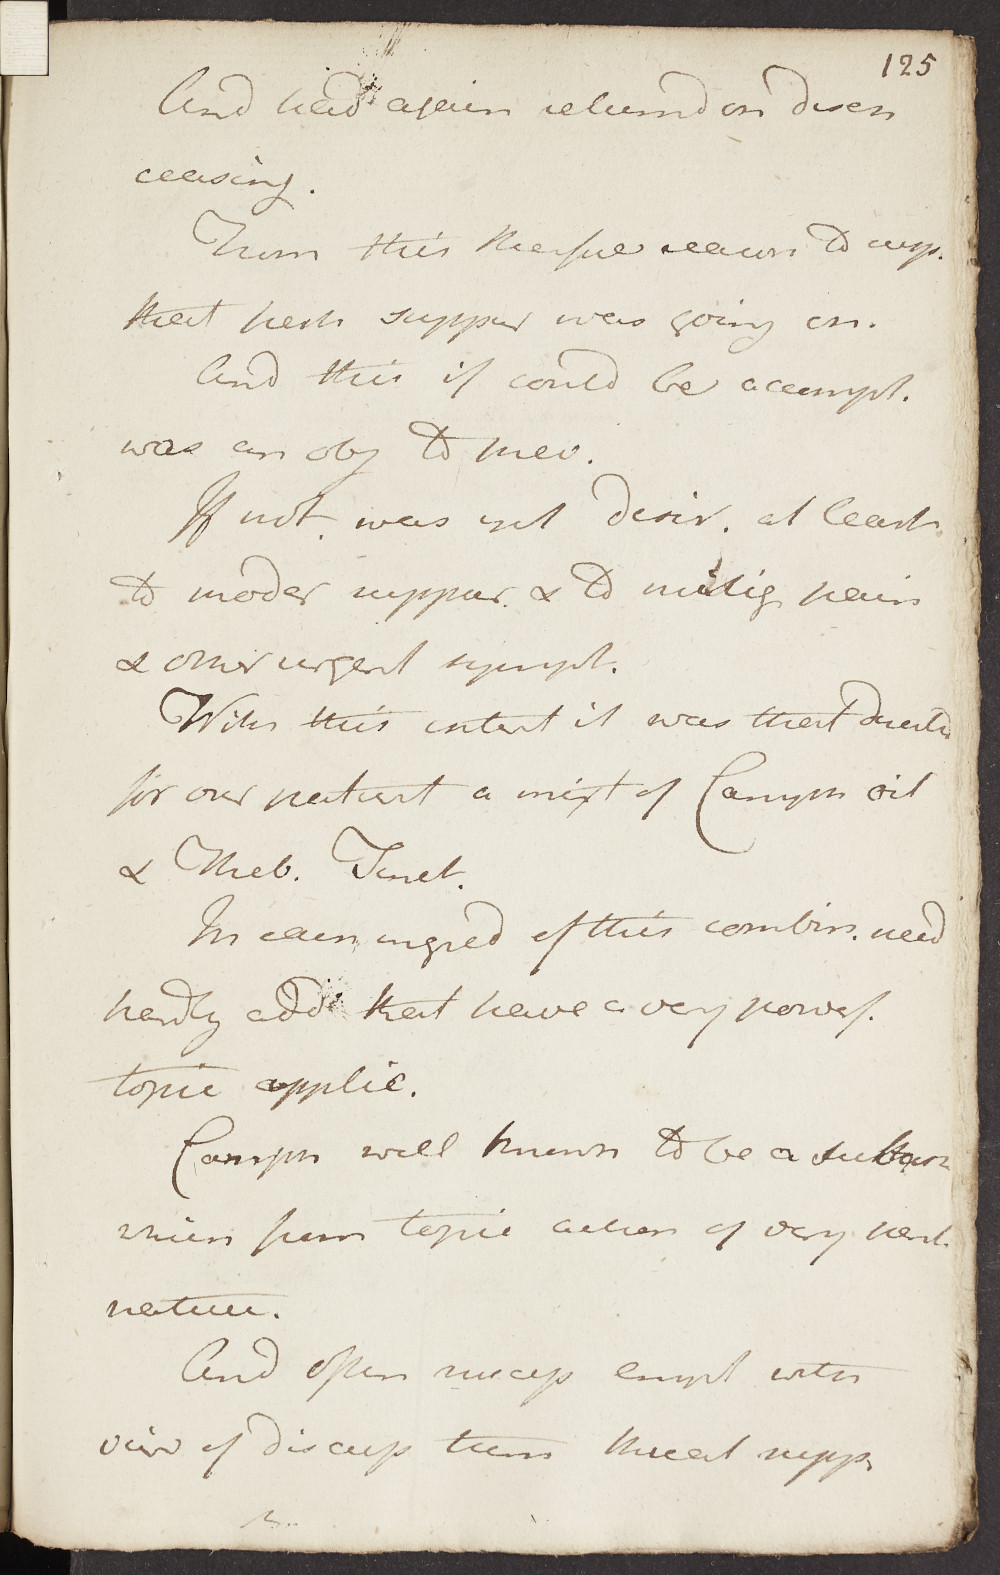 125
And had again returnd on disch
ceasing.
From this therfore reason to supp.
that fresh suppur was going on.
And this if could be accompl.
was an obj to me.
If not, was yet desir. at least
to moder suppur. & to mitig pain
& other urgent sympt.
With this intent it was that
for our patient a mixt of Camph oil
& Theb. Tinct.
In each ingred of this combin. need
hardly add that have a very powerf.
topic applic.
Camph well known to be a substan
which from topic action of very
nature.
And often success empl with
view of discuss tum threat supp.